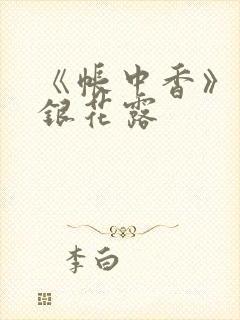 《帐中香》
银花露
李白